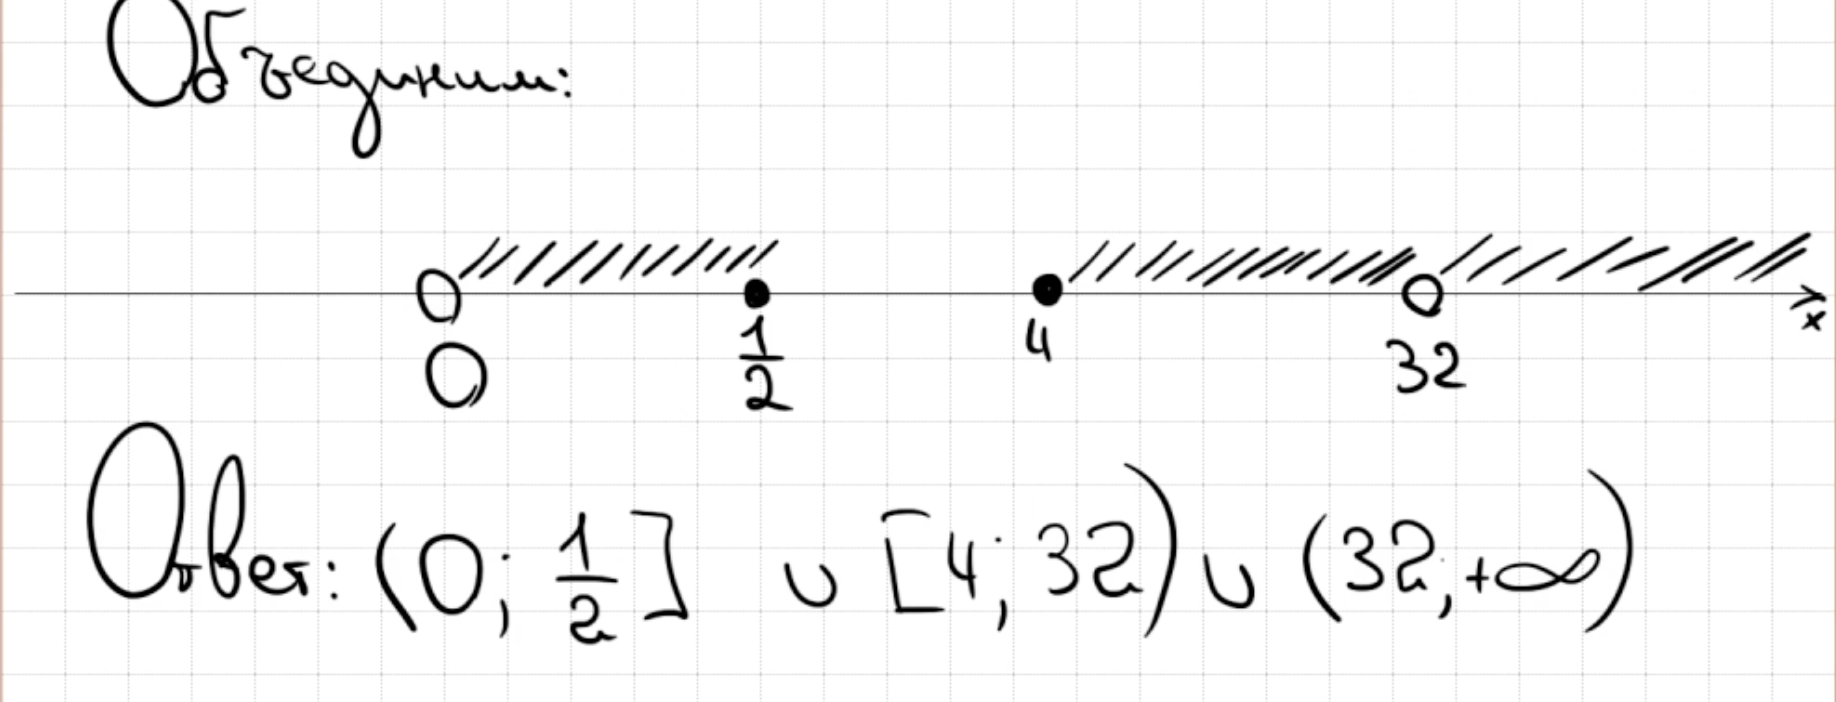 Объединим:
0 1/2 4 32 x
Ответ: (0; 1/2] ∪ [4; 32) ∪ (32; +∞)